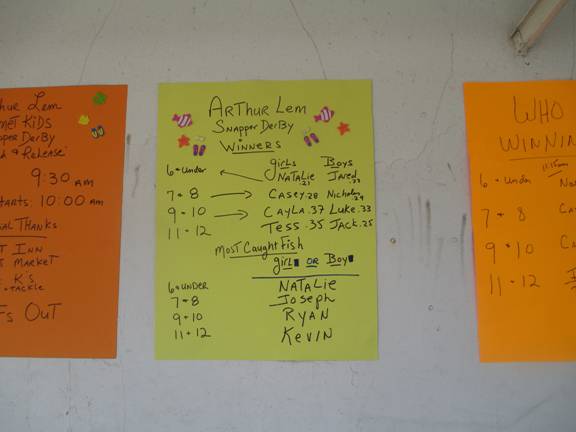 hur Lem
KIDS
per DerBy
& Release
9:30 am
tarts: 10:00 am
al Thanks
T Inn
s Market
K's
+ Tackle
s Out
Arthur Lem
Snapper DerBy
Winners
girls Boys
6 + under Natalie .21 Jared .23
7 + 8 Casey .28 Nicholas .24
9 - 10 Cayla .37 Luke .33
11 - 12 Tess .35 Jack .25
Most Caught Fish
girl or Boy
6 + under Natalie
7 + 8 Joseph
9 + 10 Ryan
11 + 12 Kevin
WHO
WINNIN
11:15am
6 + under Na
7 + 8 Ca
9 + 10 Ca
11 + 12